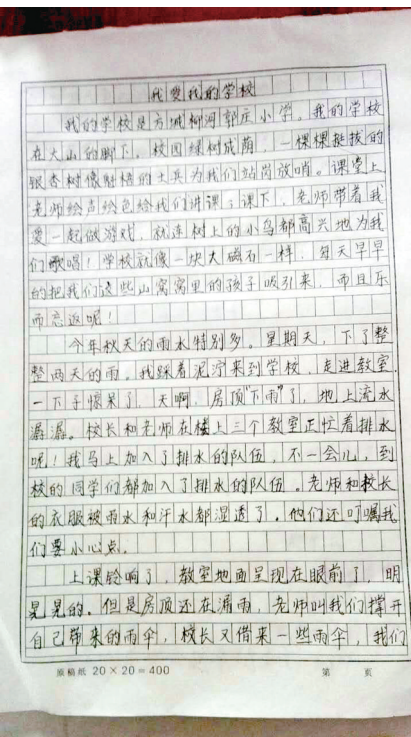 我爱我的学校
我的学校是方城柳河郭庄小学。我的学校
在大山的脚下，校园绿树成荫，一棵棵挺拔的
银杏树像魁梧的士兵为我们站岗放哨。课堂上
老师绘声绘色给我们讲课；课下，老师带着我
爱一起做游戏，就连树上的小鸟都高兴地为我
们歌唱！学校就像一块大磁石一样，每天早早
的把我们这些山窝窝里的孩子吸引来，而且乐
而忘返呢！
今年秋天的雨水特别多。星期天，下了整
整两天的雨。我踩着泥泞来到学校，走进教室
一下子惊呆了，天啊，房顶"下雨"了，地上流水
潺潺。校长和老师在楼上三个教室正忙着排水
呢！我马上加入了排水的队伍，不一会儿，到
校的同学们都加入了排水的队伍。老师和校长
的衣服被雨水和汗水都湿透了。他们还叮嘱我
们要小心点。
上课铃响了，教室地面呈现在眼前了，明
晃晃的。但是房顶还在漏雨，老师叫我们撑开
自己带来的雨伞，校长又借来一些雨伞，我们
原稿纸 20×20=400 第 页